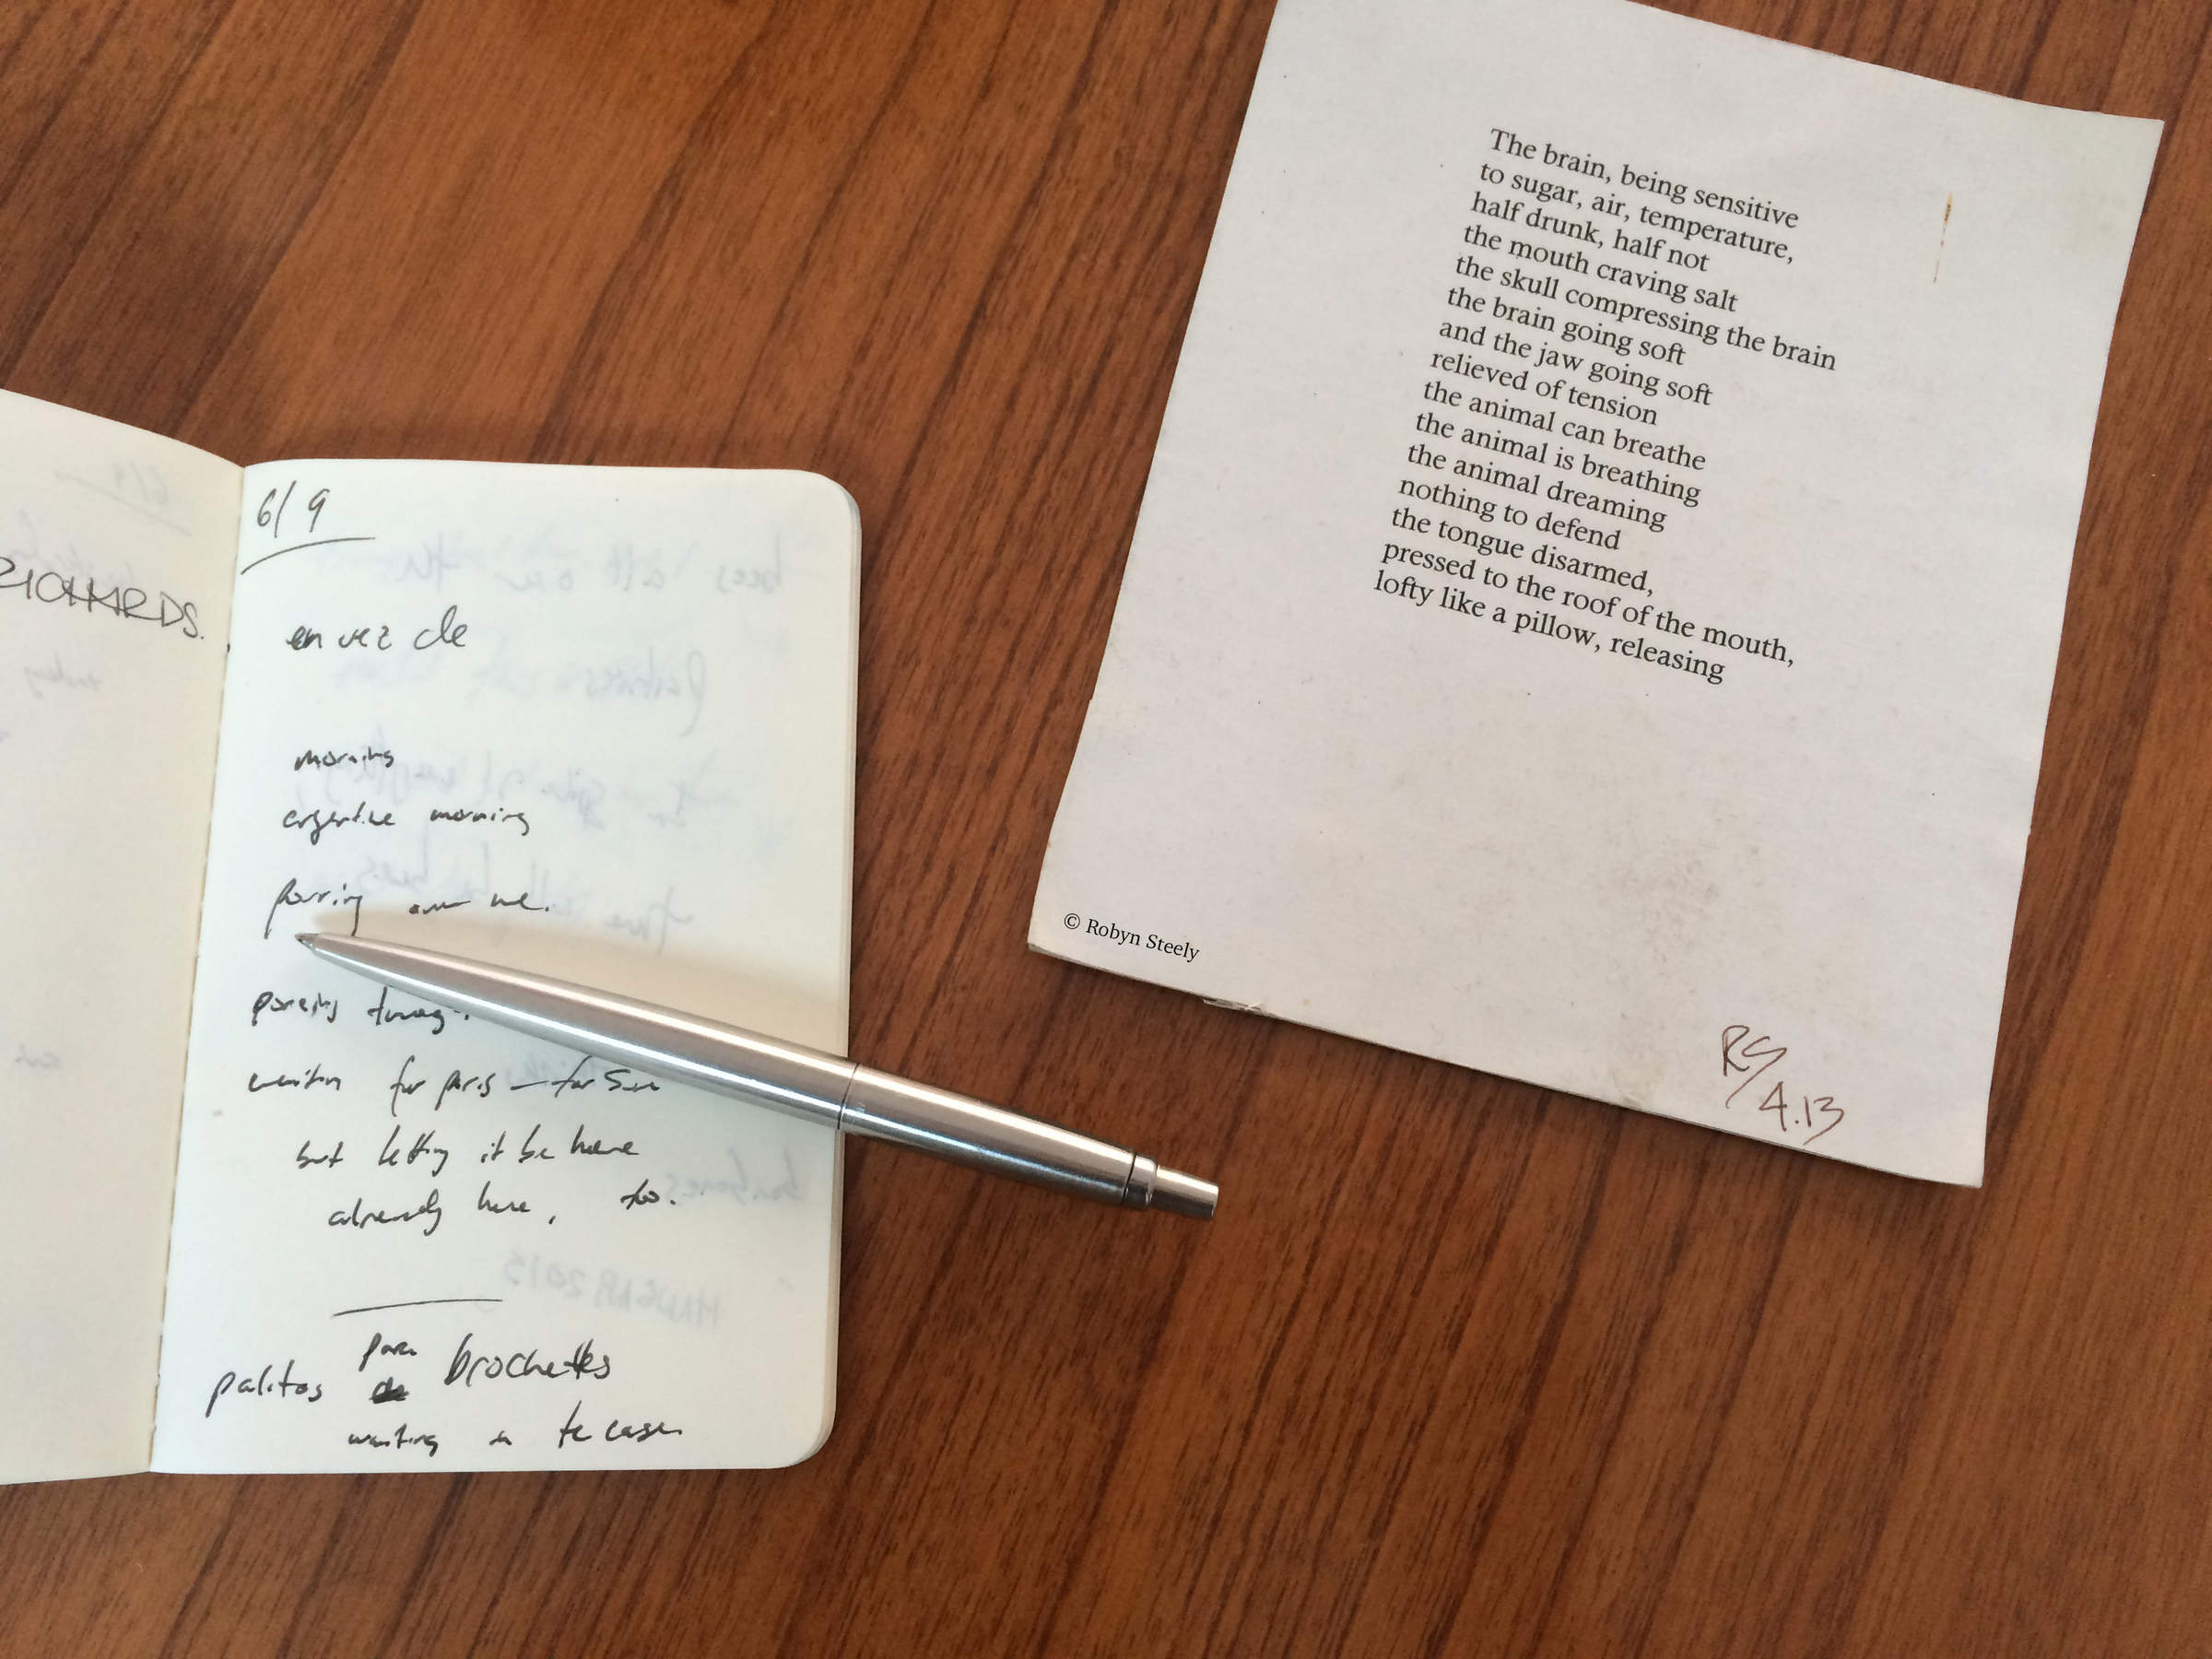 RICHARDS.
6/9
en vez de
morning
argentine morning
pouring over me.
poring
waiting for paris — for
but letting it be here
already here, too.
para
palitos de brochettes
waiting in te casa
The brain, being sensitive
to sugar, air, temperature,
half drunk, half not
the mouth craving salt
the skull compressing the brain
the brain going soft
and the jaw going soft
relieved of tension
the animal can breathe
the animal is breathing
the animal dreaming
nothing to defend
the tongue disarmed,
pressed to the roof of the mouth,
lofty like a pillow, releasing
© Robyn Steely
RS/
4.13